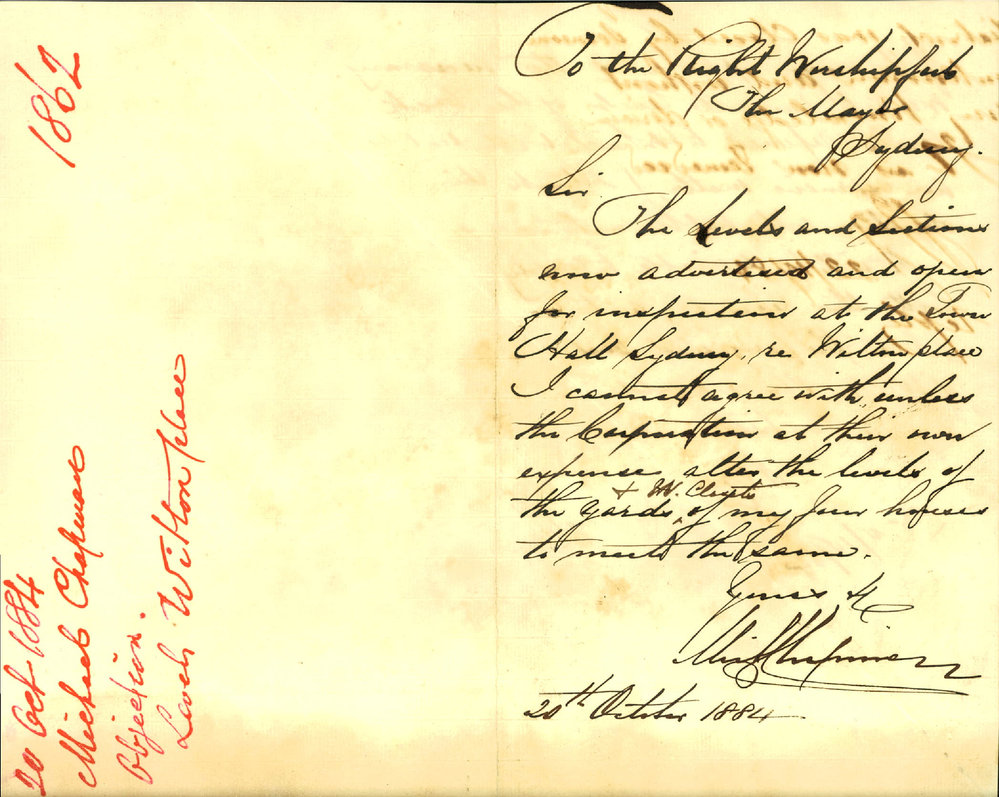 1862
20 Oct 1884
Michael Chapman
Objection.
Levels Wilton place
To the Right Worshipful
The Mayor
Sydney.
Sir
The Levels and Sections
now advertised and open
for inspection at the Town
Hall Sydney, re Wilton place
I cannot agree with unless
the Corporation at their own
expense alter the levels of
+ W. Closets
the yards ^ of my four houses
to meet the same.
Yours &c
Michl Chapman
20th October 1884